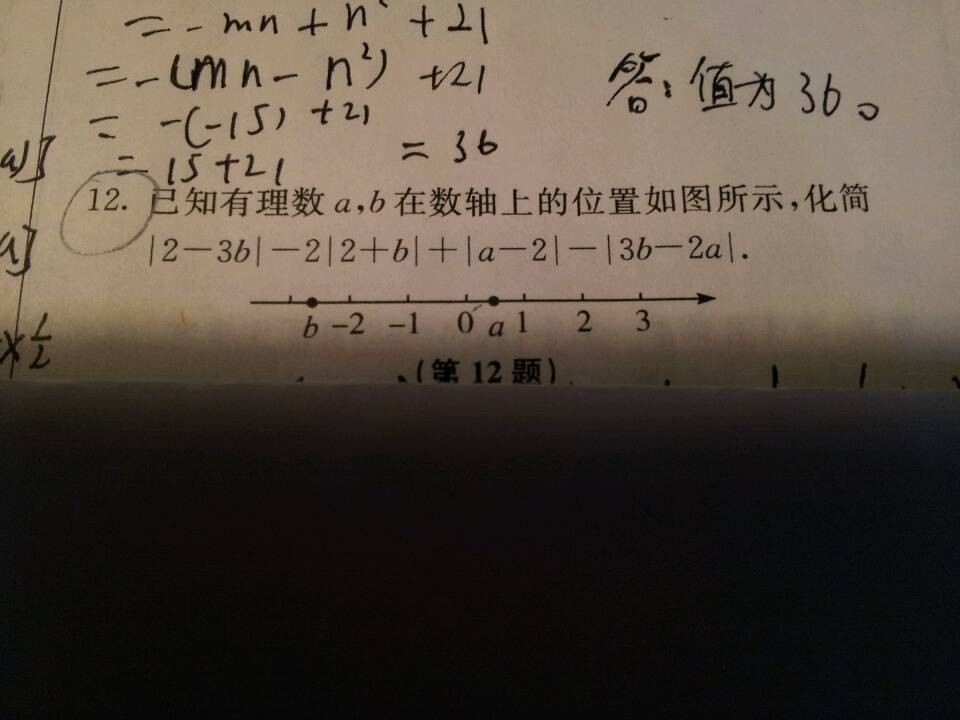 = - mn + n² + 21
= -(mn - n²) + 21
= -(-15) + 21
= 15 + 21 = 36
答：值为36。
a)]
a]
× 1/2
12. 已知有理数 a,b 在数轴上的位置如图所示,化简
|2-3b|-2|2+b|+|a-2|-|3b-2a|.
b -2 -1 0 a 1 2 3
(第 12 题)